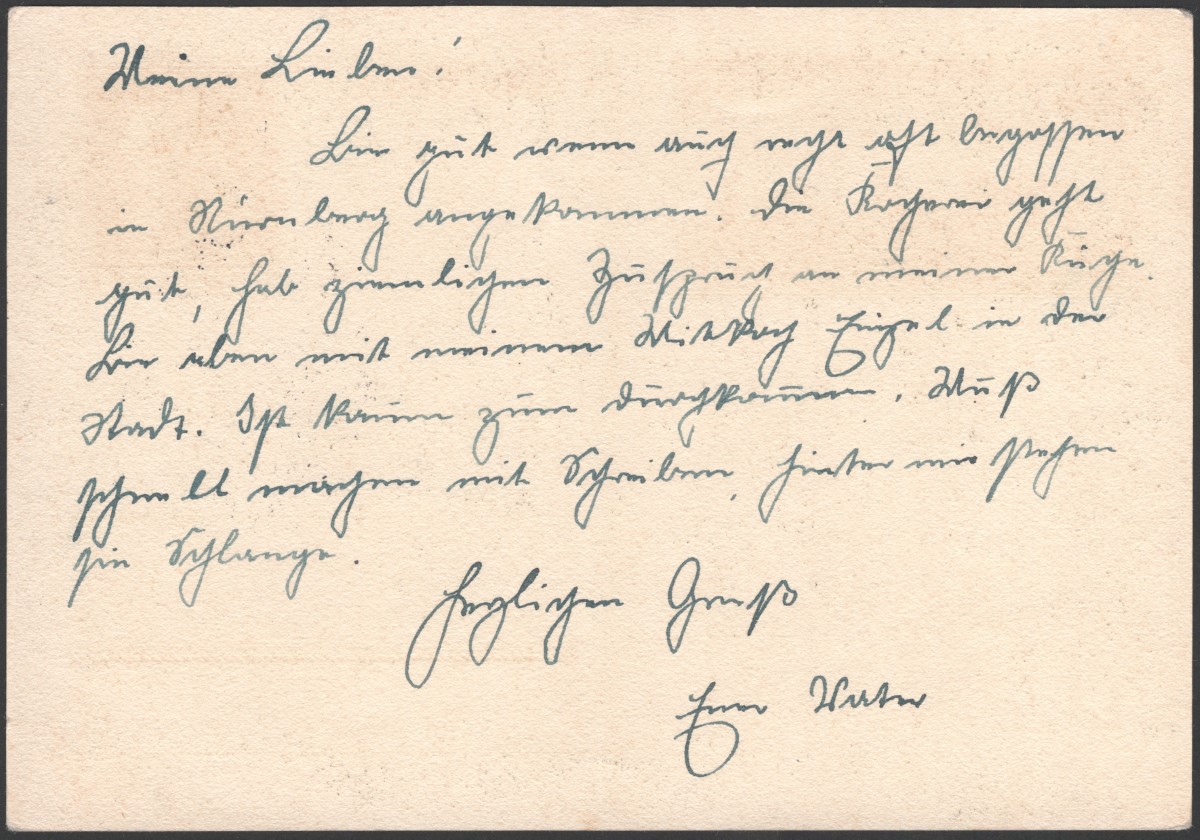 Meine Lieben!
Bin gut wenn auch recht oft begossen
in Nürnberg angekommen. Die Kocherei geht
gut, hab ziemlichen Zuspruch an meiner Küche.
Bin eben mit meinem Mitkoch in der
Stadt. Ist kaum zum durchkommen. Muß
schnell machen mit Schreiben, hinter mir stehen
sie Schlange.
Herzlichen Gruß
Euer Vater